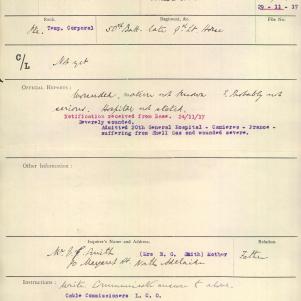 29-11-17
Rank. Regiment, &c. File No.
Pte. Temp. Corporal 50th Batt. late 9th Lt Horse
C/L Not yet
OFFICIAL REPORTS:
Wounded, nature not known ? Probably not
serious. Hospital not stated.
Notification received from Base. 24/11/17
Severely wounded.
Admitted 20th General Hospital - Camieres - France -
suffering from Shell Gas and wounded severe.
Other Information:
Inquirer's Name and Address. Relation
Mr Smith (Mrs B. G. Smith) Mother Father
Margaret St. North Adelaide
Instructions: Write Communicate
Cable Commissioners L. C. C.